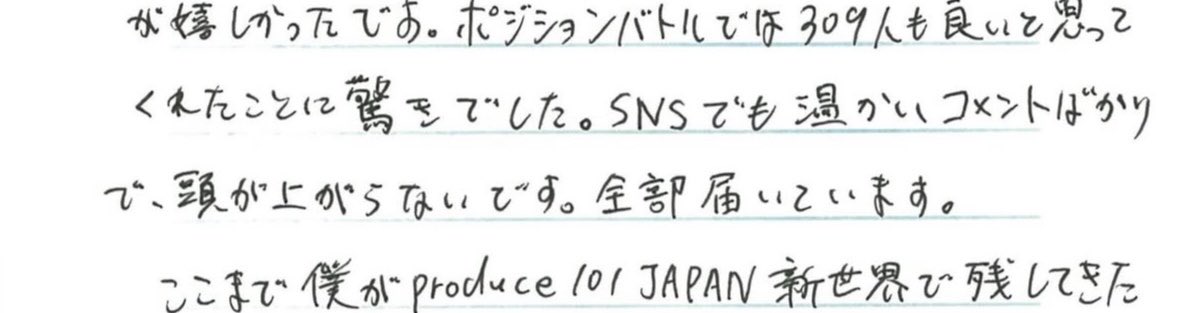 が嬉しかったです。ポジションバトルでは309人も良いと思って
くれたことに驚きでした。SNSでも温かいコメントばかり
で、頭が上がらないです。全部届いています。
ここまで僕がproduce 101 JAPAN 新世界で残してきた